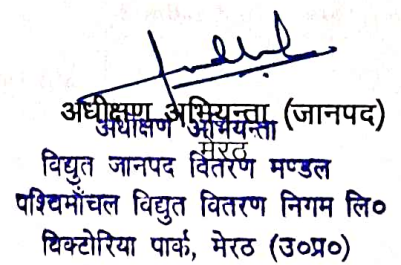 अधीक्षण अभियन्ता (जानपद)
अधीक्षण अभियन्ता
मेरठ
विद्युत जानपद वितरण मण्डल
पश्चिमाँचल विद्युत वितरण निगम लि०
विक्टोरिया पार्क, मेरठ (उ०प्र०)